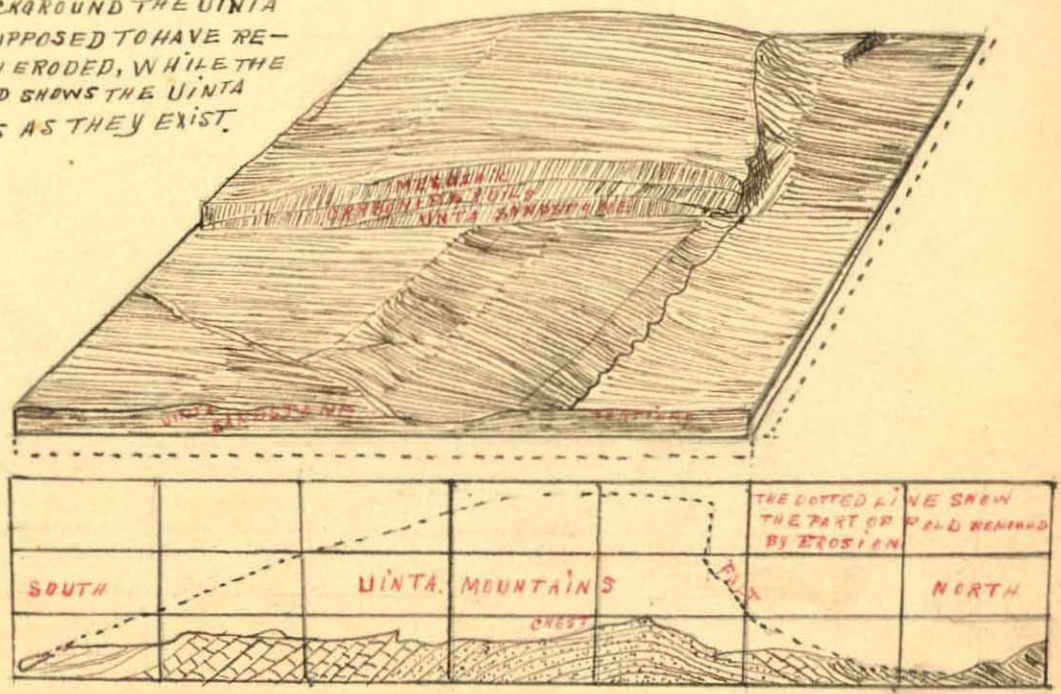 CKGROUND THE UINTA
PPOSED TO HAVE RE-
ERODED, WHILE THE
D SHOWS THE UINTA
S AS THEY EXIST.
UNTA SANDSTONE
UINTA
SANDSTONE
THE DOTTED LINE SHOW
THE PART OF FOLD REMOVED
BY EROSION
SOUTH
UINTA. MOUNTAINS
NORTH
CREST